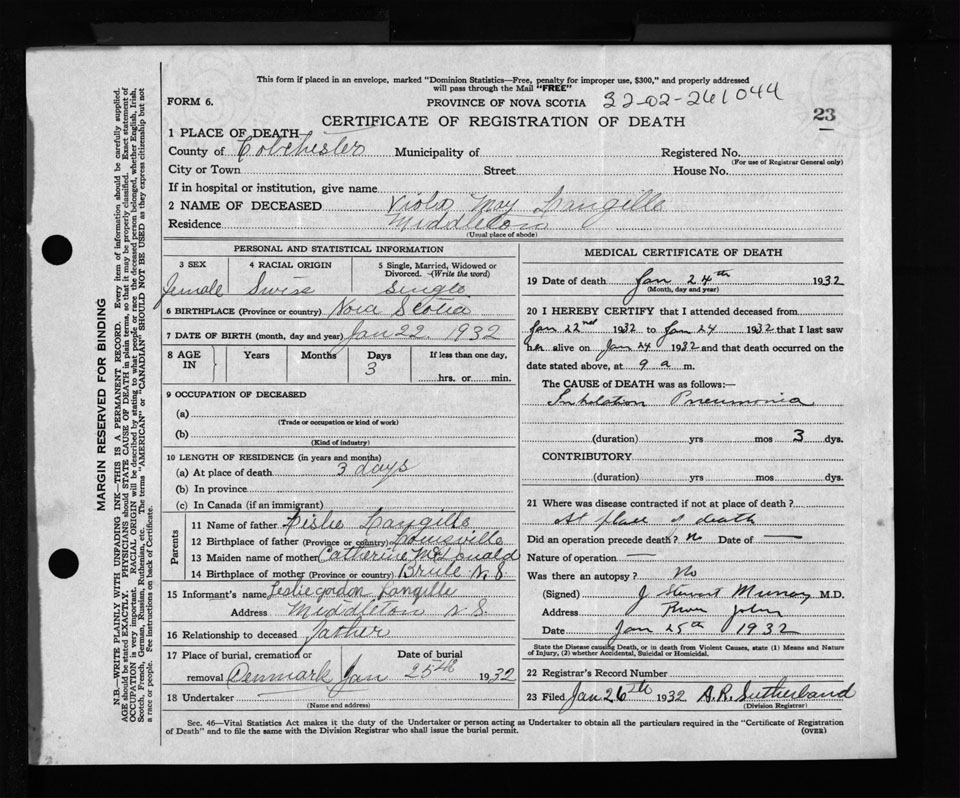 This form if placed in an envelope, marked "Dominion Statistics—Free, penalty for improper use, $300," and properly addressed
will pass through the Mail "FREE"
FORM 6. PROVINCE OF NOVA SCOTIA 32-02-261044
CERTIFICATE OF REGISTRATION OF DEATH 23
1 PLACE OF DEATH
County of Colchester Municipality of Registered No.
(For use of Registrar General only)
City or Town Street House No.
If in hospital or institution, give name
2 NAME OF DECEASED Viola May Langille
Residence Middleton
(Usual place of abode)
PERSONAL AND STATISTICAL INFORMATION
3 SEX 4 RACIAL ORIGIN 5 Single, Married, Widowed or
Divorced. (Write the word)
female Swise Single
6 BIRTHPLACE (Province or country) Nova Scotia
7 DATE OF BIRTH (month, day and year) Jan 22 1932
8 AGE IN Years Months Days If less than one day,
3 hrs. or min.
9 OCCUPATION OF DECEASED
(a)
(Trade or occupation or kind of work)
(b)
(Kind of industry)
10 LENGTH OF RESIDENCE (in years and months)
(a) At place of death 3 days
(b) In province
(c) In Canada (if an immigrant)
Parents
11 Name of father Leslie Langille
12 Birthplace of father (Province or country) Louisville
13 Maiden name of mother Catherine McDonald
14 Birthplace of mother (Province or country) Brule N.S
15 Informant's name Leslie Gordon Langille
Address Middleton N.S.
16 Relationship to deceased father
17 Place of burial, cremation or Date of burial
removal Denmark Jan 25th 1932
18 Undertaker
(Name and address)
MEDICAL CERTIFICATE OF DEATH
19 Date of death Jan 24th 1932
(Month, day and year)
20 I HEREBY CERTIFY that I attended deceased from
Jan 22nd 1932 to Jan 24 1932 that I last saw
her alive on Jan 24 1932 and that death occurred on the
date stated above, at 9 a m.
The CAUSE OF DEATH was as follows:—
Inhalation Pneumonia
(duration) yrs mos 3 dys.
CONTRIBUTORY
(duration) yrs mos dys.
21 Where was disease contracted if not at place of death?
At place of death
Did an operation precede death? no Date of —
Nature of operation —
Was there an autopsy? No
(Signed) J Stewart Murray M.D.
Address River John
Date Jan 25th 1932
State the Disease causing Death, or in death from Violent Causes, state (1) Means and Nature
of Injury, (2) whether Accidental, Suicidal or Homicidal.
22 Registrar's Record Number
23 Filed Jan 26th 1932 A.R. Sutherland
(Division Registrar)
Sec. 46—Vital Statistics Act makes it the duty of the Undertaker or person acting as Undertaker to obtain all the particulars required in the "Certificate of Registration
of Death" and to file the same with the Division Registrar who shall issue the burial permit. (OVER)
MARGIN RESERVED FOR BINDING
N.B.—WRITE PLAINLY WITH UNFADING INK—THIS IS A PERMANENT RECORD. Every item of information should be carefully supplied.
AGE should be stated EXACTLY. PHYSICIANS should STATE CAUSE OF DEATH in plain terms, so that it may be properly classified. Exact statement of
OCCUPATION is very important. RACIAL ORIGIN will be described by stating to what people or race the deceased person belonged, whether English, Irish,
Scotch, French, German, Russian, Ruthenian, etc. The terms "AMERICAN" or "CANADIAN" SHOULD NOT BE USED as they express citizenship but not
a race or people. See instructions on back of Certificate.